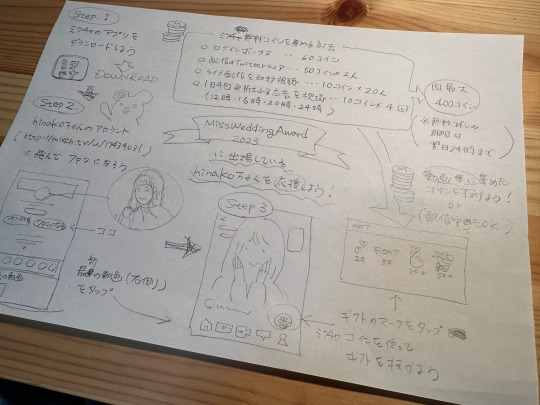 Step 1
ミクチャのアプリを
ダウンロードしよう
DOWNROAD
Step 2
hinakoちゃんのアカウント
に飛んでファンになろう
ココ
の動画(右側)
をタップ
コインを集める方法
ログインボーナス … 60コイン
配信のtwitterシェア … 50コイン×2人
ライブ配信を30秒視聴 … 10コイン×20人
1日4回更新される広告を視聴 … 10コイン×4回
(12時・16時・20時・24時)
1日最大
400コイン
※無料コインの
期限は
翌日24時まで
MissWeddingAward
2023
に出場している
hinakoちゃんを応援しよう!
Step 3
動画 集めた
コインを投げよう!
or
(配信中もOK)
HOT
20
FIGHT
50
300
500
ギフトのマークをタップ
ミクチャコインを使って
ギフトを投げよう